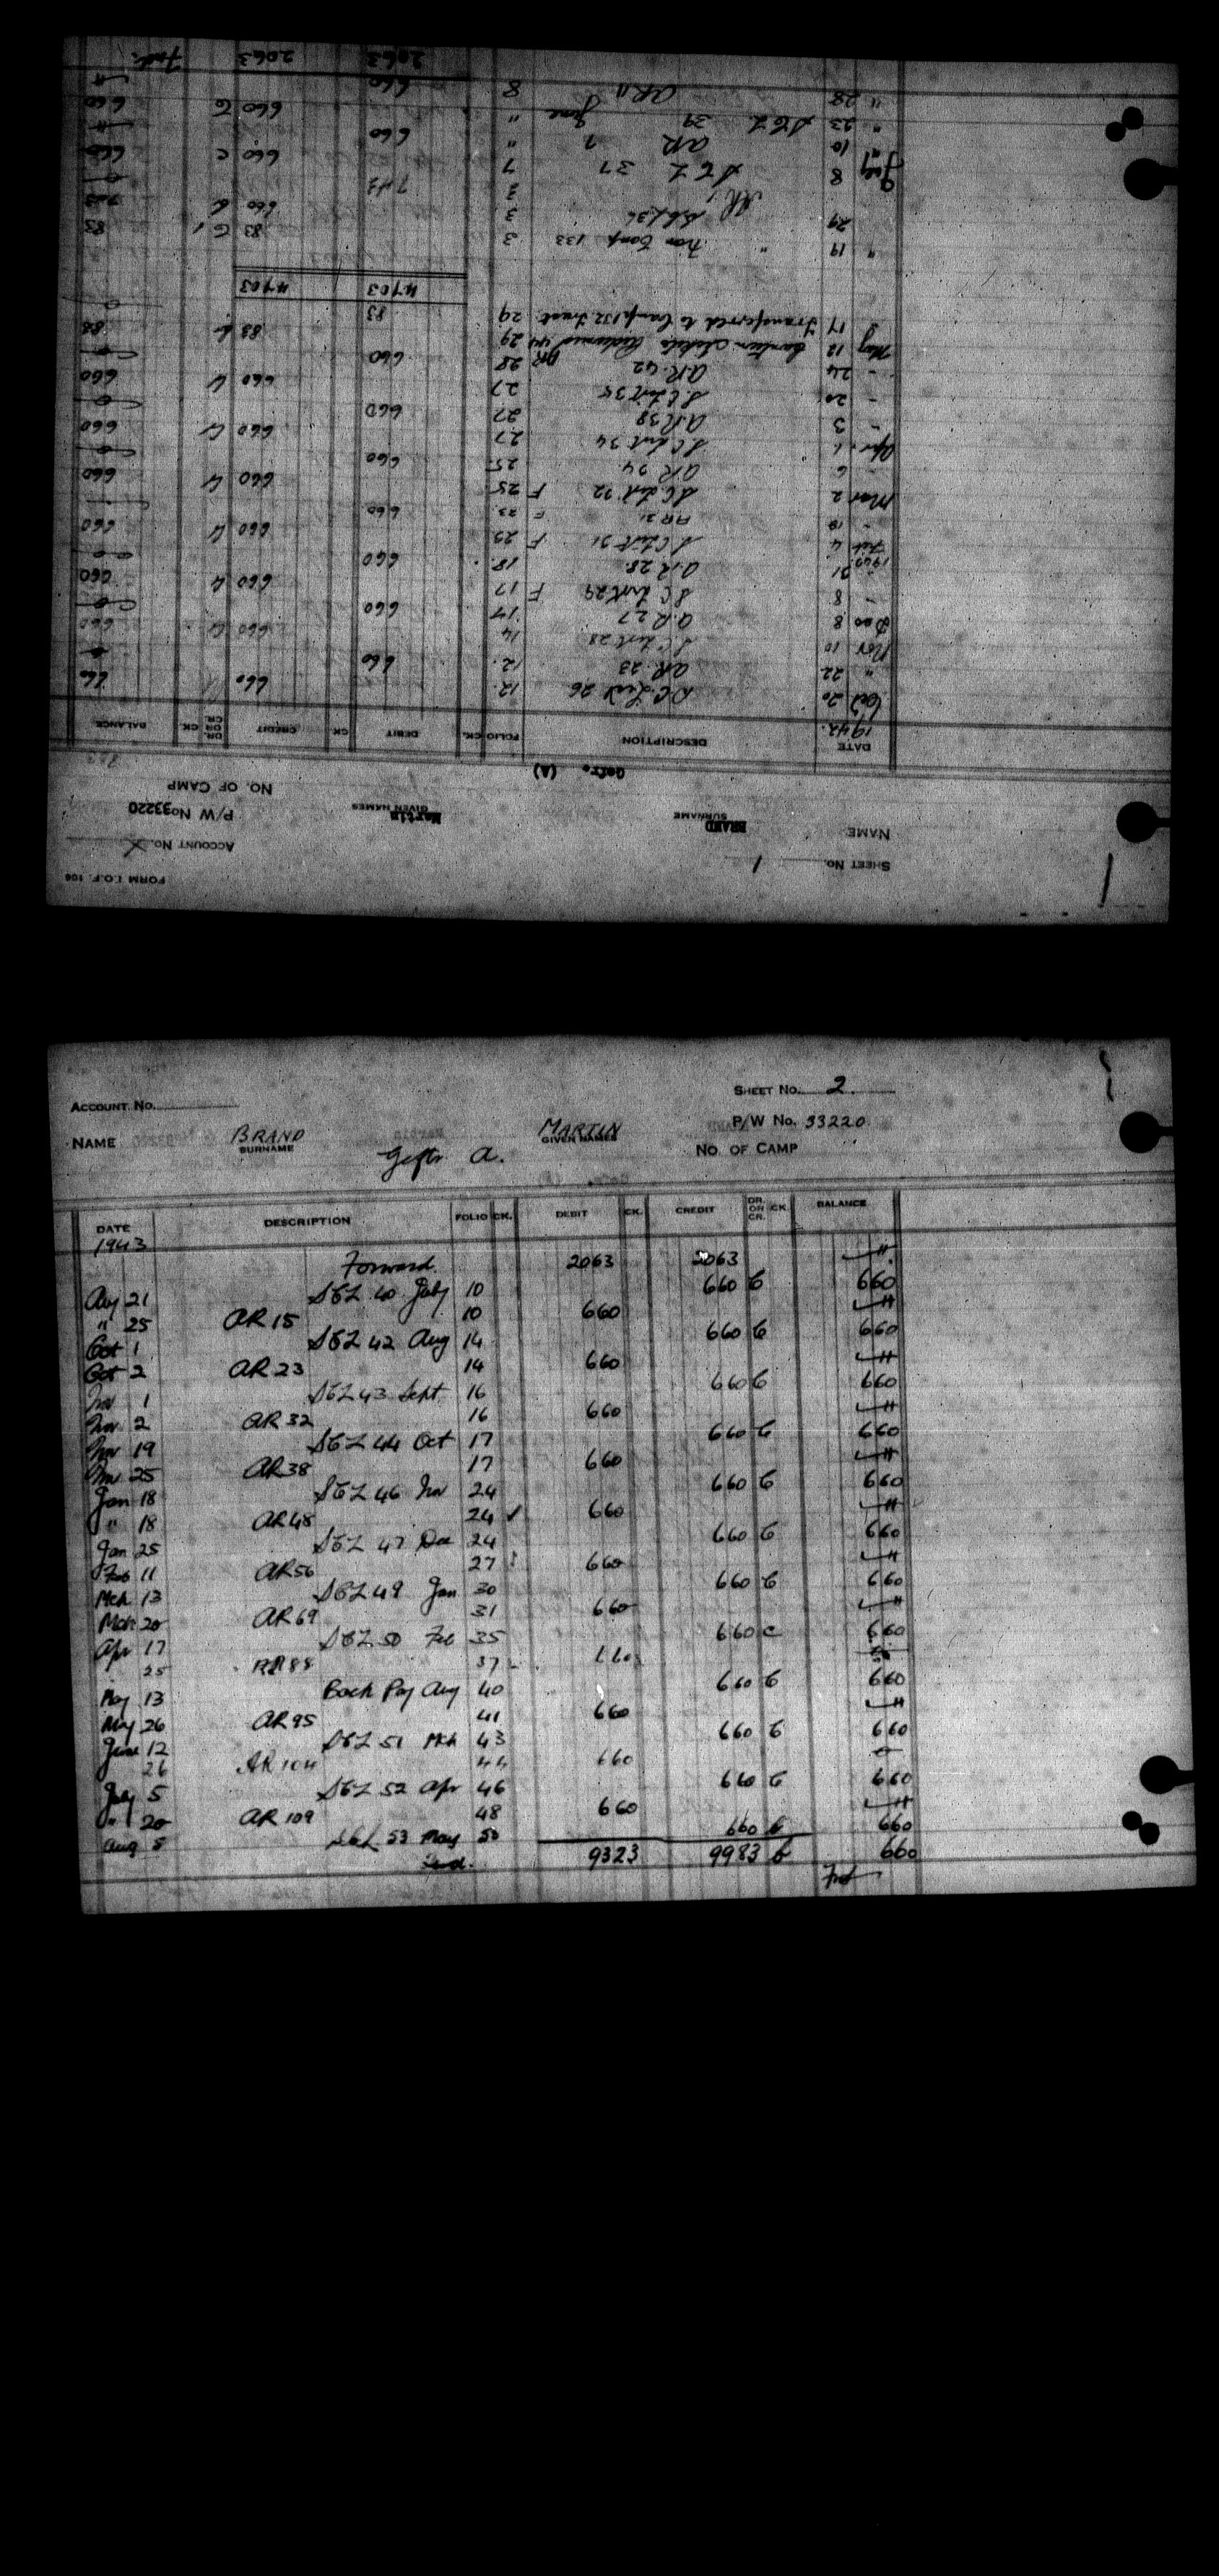 FORM I.O.F. 106
SHEET NO. 1
ACCOUNT NO.
NAME BRAND Martin P/W No. 33220
SURNAME GIVEN NAMES
NO. OF CAMP
Gefr. (A)
DATE DESCRIPTION FOLIO CK. DEBIT CK CREDIT DR. OR CR. CK. BALANCE
1942.
Oct 20 S.C. List 26 12 660 660
" 22 A.R. 23 12 660
Nov 10 S.C. List 28 14 660 660
Dec 8 A.R. 27 14 660
- 8 S C List 29 F 17 660 660
- 31 A.R. 28 18 660
1943
Feb 4 S C List 31 F 23 660 660
- 10 AR 31 F 23 660
Mar 2 S.C. List 32 F 25 660 660
- 6 A.R. 34 25 660
Apr 1 S C List 34 27 660 660
- 3 A.R. 38 27 660
- 20 S.C. List 35 27 660 660
- 24 A.R. 42 28 660
May 12 Canteen Tickets Redeemed AR 44 29 83 83
" 17 Transferred to Camp 132 29 83
4703 4703
" 19 " from Camp 133 3 83 C 83
29 36 3 660 743
AR 1 3 743
July 8 S C L 37 7 660 C 660
" 10 AR 7 " 660
" 23 S C L 39 June " 660 C 660
" 28 AR 11 8 660
2063 2063 Fwd.
ACCOUNT NO.
SHEET NO. 2.
NAME BRAND MARTIN P/W No. 33220
SURNAME GIVEN NAMES
Gefr. A. NO. OF CAMP
DATE DESCRIPTION FOLIO CK. DEBIT CK. CREDIT DR. OR CR. CK. BALANCE
1943
Forward. 2063 2063
Aug 21 SCL 40 July 10 660 C 660
" 25 AR 15 10 660
Oct 1 SCL 42 Aug 14 660 C 660
Oct 2 AR 23 14 660
Nov 1 SCL 43 Sept 16 660 C 660
Nov 2 AR 32 16 660
Nov 19 SCL 44 Oct 17 660 C 660
Nov 25 AR 38 17 660
Jan 18 SCL 46 Nov 24 660 C 660
" 18 AR 48 24 660
Jan 25 SCL 47 Dec 24 660 C 660
Feb 11 AR 56 27 660
Mch 13 SCL 49 Jan 30 660 C 660
Mch 20 AR 69 31 660
Apr 17 SCL 50 Feb 35 660 C 660
25 AR 88 37 660
May 13 Back Pay Aug 40 660 C 660
May 26 AR 95 41 660
June 12 SCL 51 Mch 43 660 C 660
26 AR 104 44 660
July 5 SCL 52 Apr 46 660 C 660
" 20 AR 109 48 660
Aug 5 SCL 53 May 50 660 C 660
Fwd. 9323 9983 C 660
Fwd